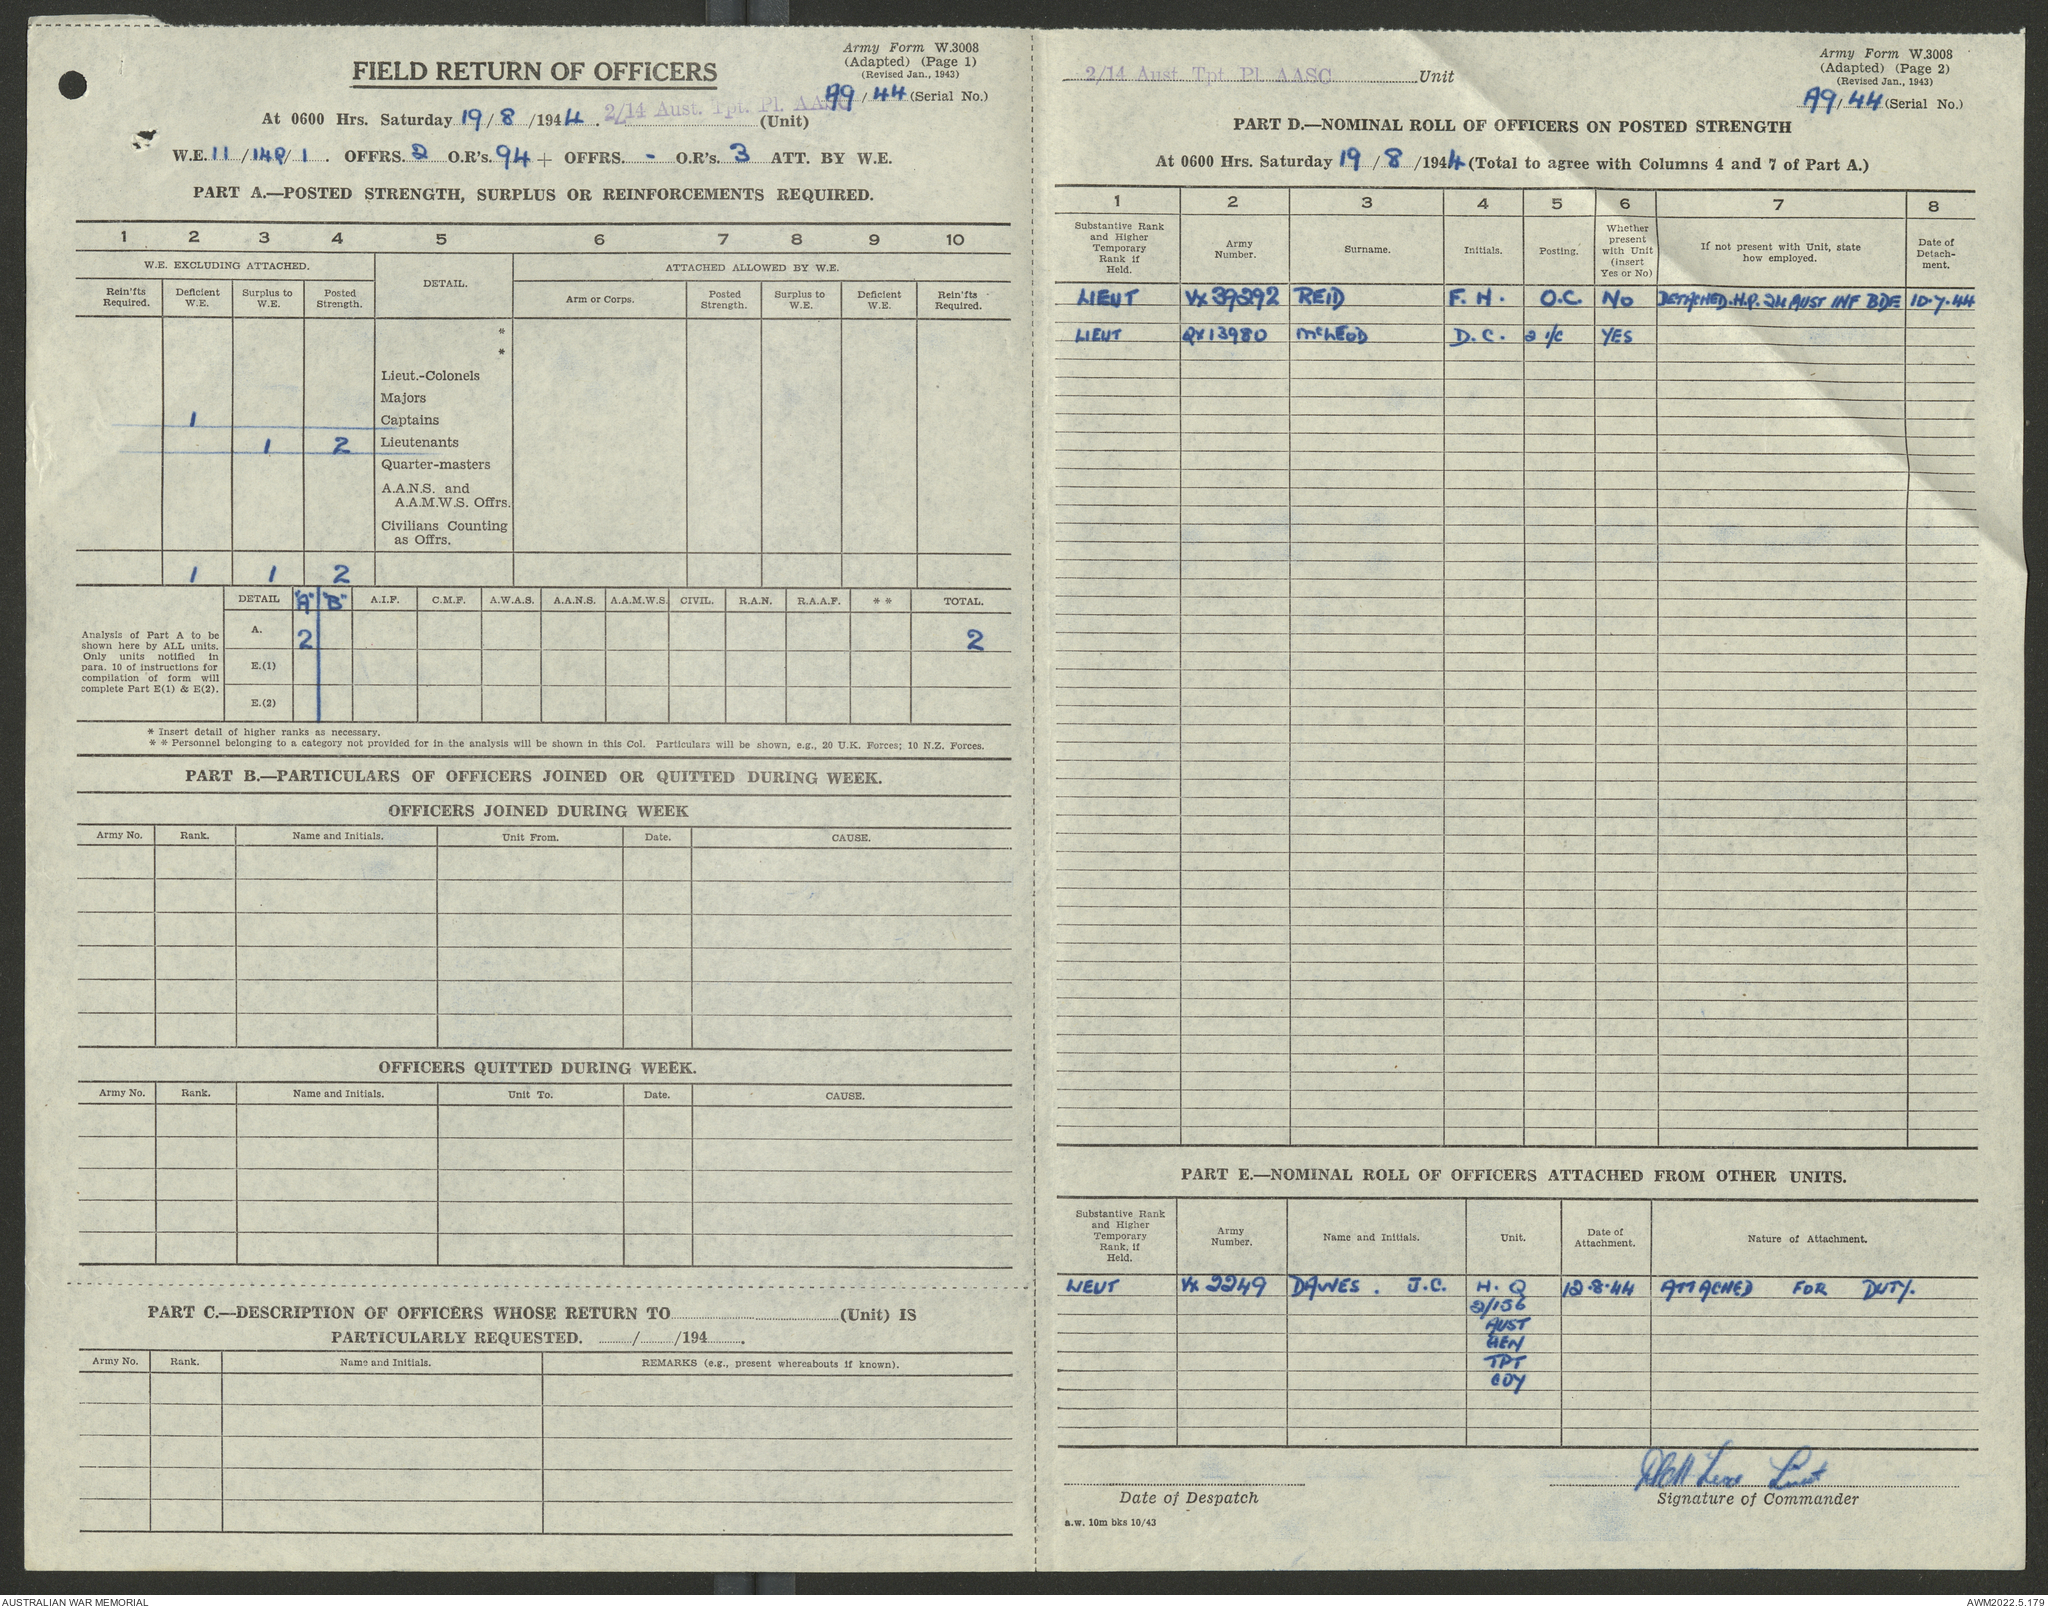 Army Form W.3008
(Adapted) (Page 1)
(Revised Jan., 1943)
FIELD RETURN OF OFFICERS
A9/44 (Serial No.)
At 0600 Hrs. Saturday 19/8/1944. 2/14 Aust. Tpt. Pl. AASC (Unit)
W.E. 11/148/1. OFFRS. 2 O.R's. 94 + OFFRS. - O.R's. 3 ATT. BY W.E.
PART A.—POSTED STRENGTH, SURPLUS OR REINFORCEMENTS REQUIRED.
1 2 3 4 5 6 7 8 9 10
W.E. EXCLUDING ATTACHED. DETAIL. ATTACHED ALLOWED BY W.E.
Rein'fts Required. Deficient W.E. Surplus to W.E. Posted Strength. Arm or Corps. Posted Strength. Surplus to W.E. Deficient W.E. Rein'fts Required.
*
*
Lieut.-Colonels
Majors
1 Captains
1 2 Lieutenants
Quarter-masters
A.A.N.S. and
A.A.M.W.S. Offrs.
Civilians Counting
as Offrs.
1 1 2
DETAIL "A" "B" A.I.F. C.M.F. A.W.A.S. A.A.N.S. A.A.M.W.S. CIVIL. R.A.N. R.A.A.F. * * TOTAL.
Analysis of Part A to be
shown here by ALL units.
Only units notified in
para. 10 of instructions for
compilation of form will
complete Part E(1) & E(2).
A. 2 2
E.(1)
E.(2)
* Insert detail of higher ranks as necessary.
* * Personnel belonging to a category not provided for in the analysis will be shown in this Col. Particulars will be shown, e.g., 20 U.K. Forces; 10 N.Z. Forces.
PART B.—PARTICULARS OF OFFICERS JOINED OR QUITTED DURING WEEK.
OFFICERS JOINED DURING WEEK
Army No. Rank. Name and Initials. Unit From. Date. CAUSE.
OFFICERS QUITTED DURING WEEK.
Army No. Rank. Name and Initials. Unit To. Date. CAUSE.
PART C.—DESCRIPTION OF OFFICERS WHOSE RETURN TO (Unit) IS
PARTICULARLY REQUESTED. / /194 .
Army No. Rank. Name and Initials. REMARKS (e.g., present whereabouts if known).
Army Form W.3008
(Adapted) (Page 2)
(Revised Jan., 1943)
2/14 Aust. Tpt. Pl. AASC Unit
A9/44 (Serial No.)
PART D.—NOMINAL ROLL OF OFFICERS ON POSTED STRENGTH
At 0600 Hrs. Saturday 19/8/1944 (Total to agree with Columns 4 and 7 of Part A.)
1 2 3 4 5 6 7 8
Substantive Rank and Higher Temporary Rank if Held. Army Number. Surname. Initials. Posting. Whether present with Unit (insert Yes or No) If not present with Unit, state how employed. Date of Detach-ment.
LIEUT VX39292 REID F. H. O.C. NO DETACHED. H.Q. 24 AUST INF BDE 10.7.44
LIEUT QX13980 McLEOD D.C. 2 i/c YES
PART E.—NOMINAL ROLL OF OFFICERS ATTACHED FROM OTHER UNITS.
Substantive Rank and Higher Temporary Rank, if Held. Army Number. Name and Initials. Unit. Date of Attachment. Nature of Attachment.
LIEUT VX 2249 DAWES. J.C. H.Q 12.8.44 ATTACHED FOR DUTY.
2/156
AUST
GEN
TPT
COY
Lieut
Date of Despatch Signature of Commander
a.w. 10m bks 10/43
AUSTRALIAN WAR MEMORIAL AWM2022.5.179